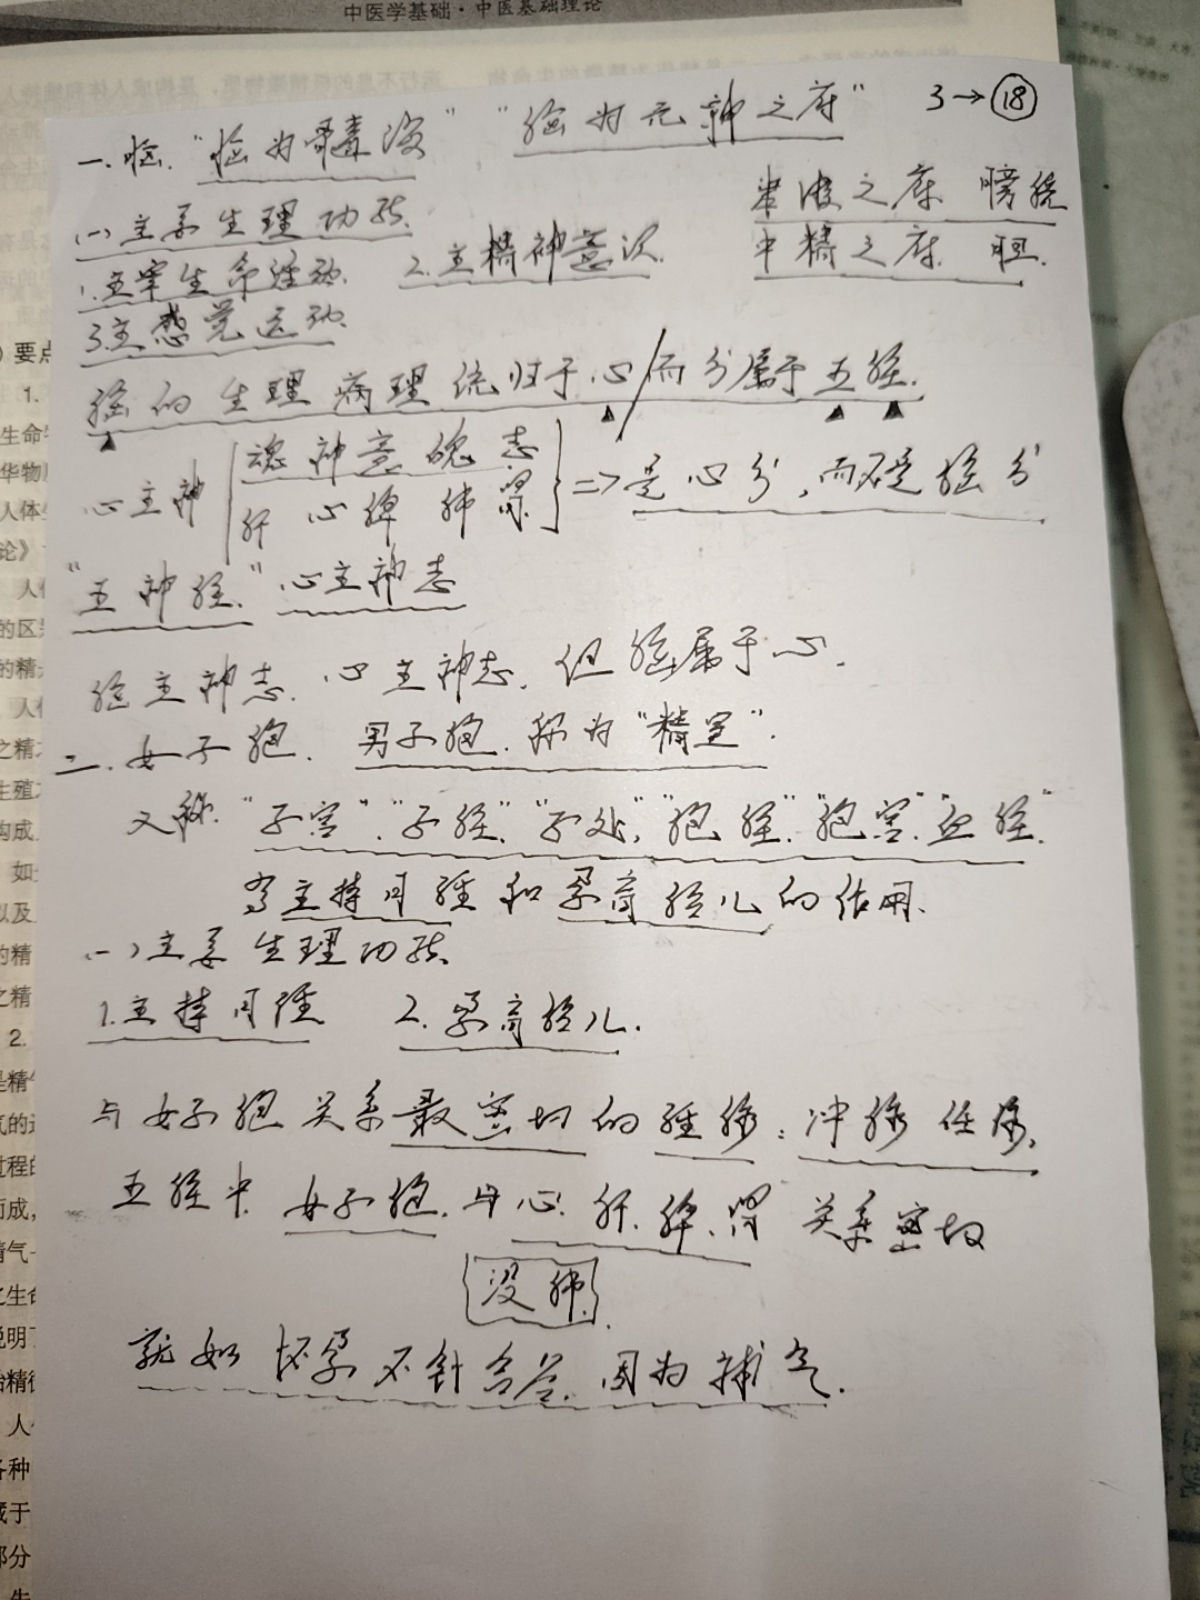 中医学基础·中医基础理论
3→⑱
一.脑.“脑为髓海” “脑为元神之府”
津液之府 膀胱
(一)主要生理功能.
中精之府. 胆.
1.主宰生命活动. 2.主精神意识.
3.主感觉运动.
脑的生理病理统归于心/而分属于五脏.
心主神 魂神意魄志
肝心脾肺肾
=>是心分,而不是脑分
“五神脏.” 心主神志
脑主神志. 心主神志. 但脑属于心.
二.女子胞. 男子胞.称为“精室”.
又称“子宫”.“子脏”.“子处”.“胞脏”.“胞宫”.“血脏”.
有主持月经和孕育胎儿的作用.
(一)主要生理功能.
1.主持月经 2.孕育胎儿.
与女子胞关系最密切的经脉:冲脉任脉.
五脏中.女子胞.与心.肝.脾.肾关系密切
没肺.
就如怀孕不针合谷.因为补气.
)要点
1.
人体
论》
人体
的区
的精
之精
生殖
构成
以及
的精
之精
2.
是精气
气的
过程的
而成,
精气
之生命
说明
各种
藏于
部分